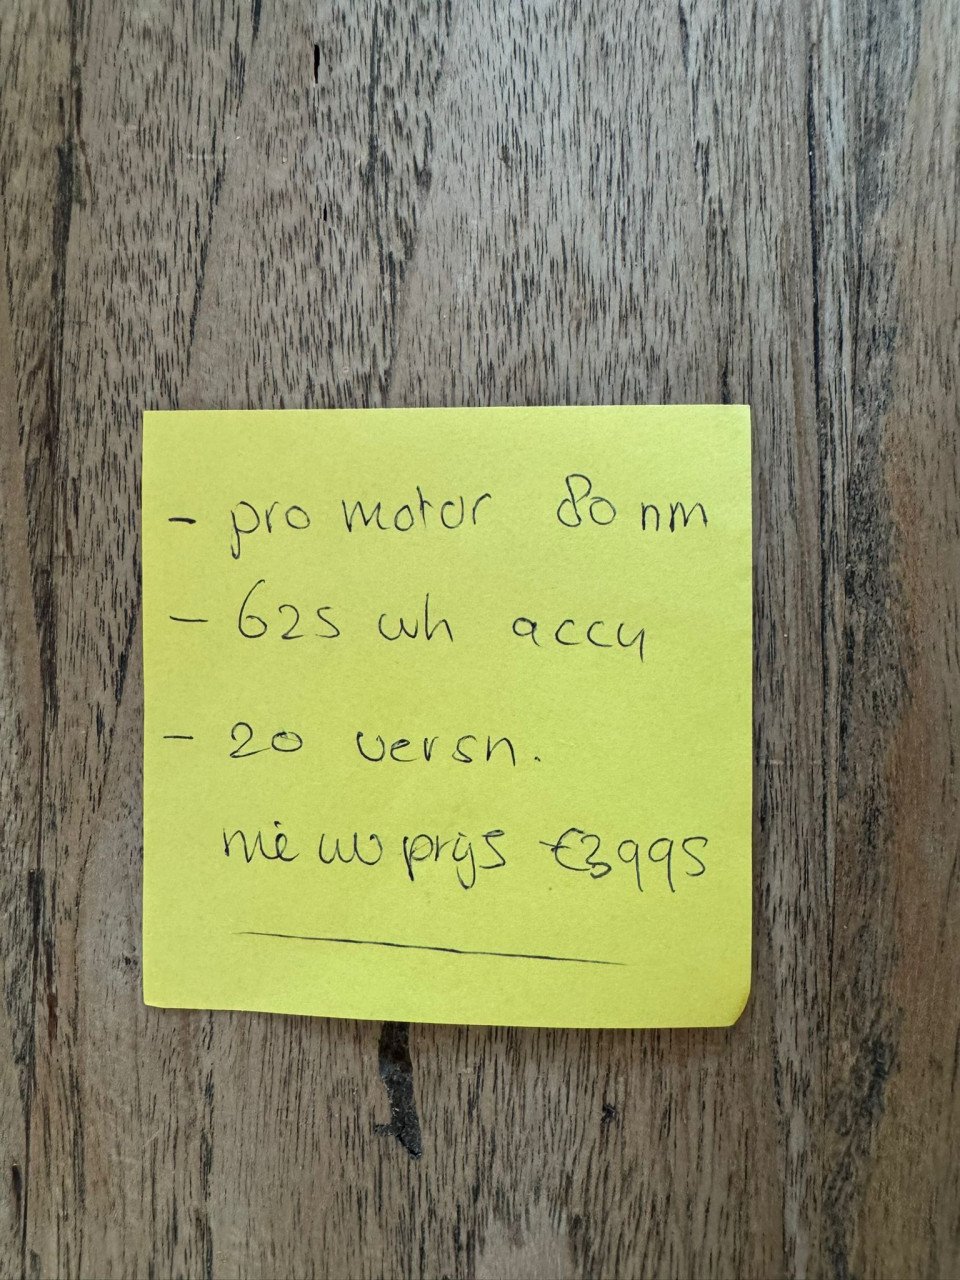 - pro motor 80 nm
- 625 wh accu
- 20 versn.
nieuwprijs €3995